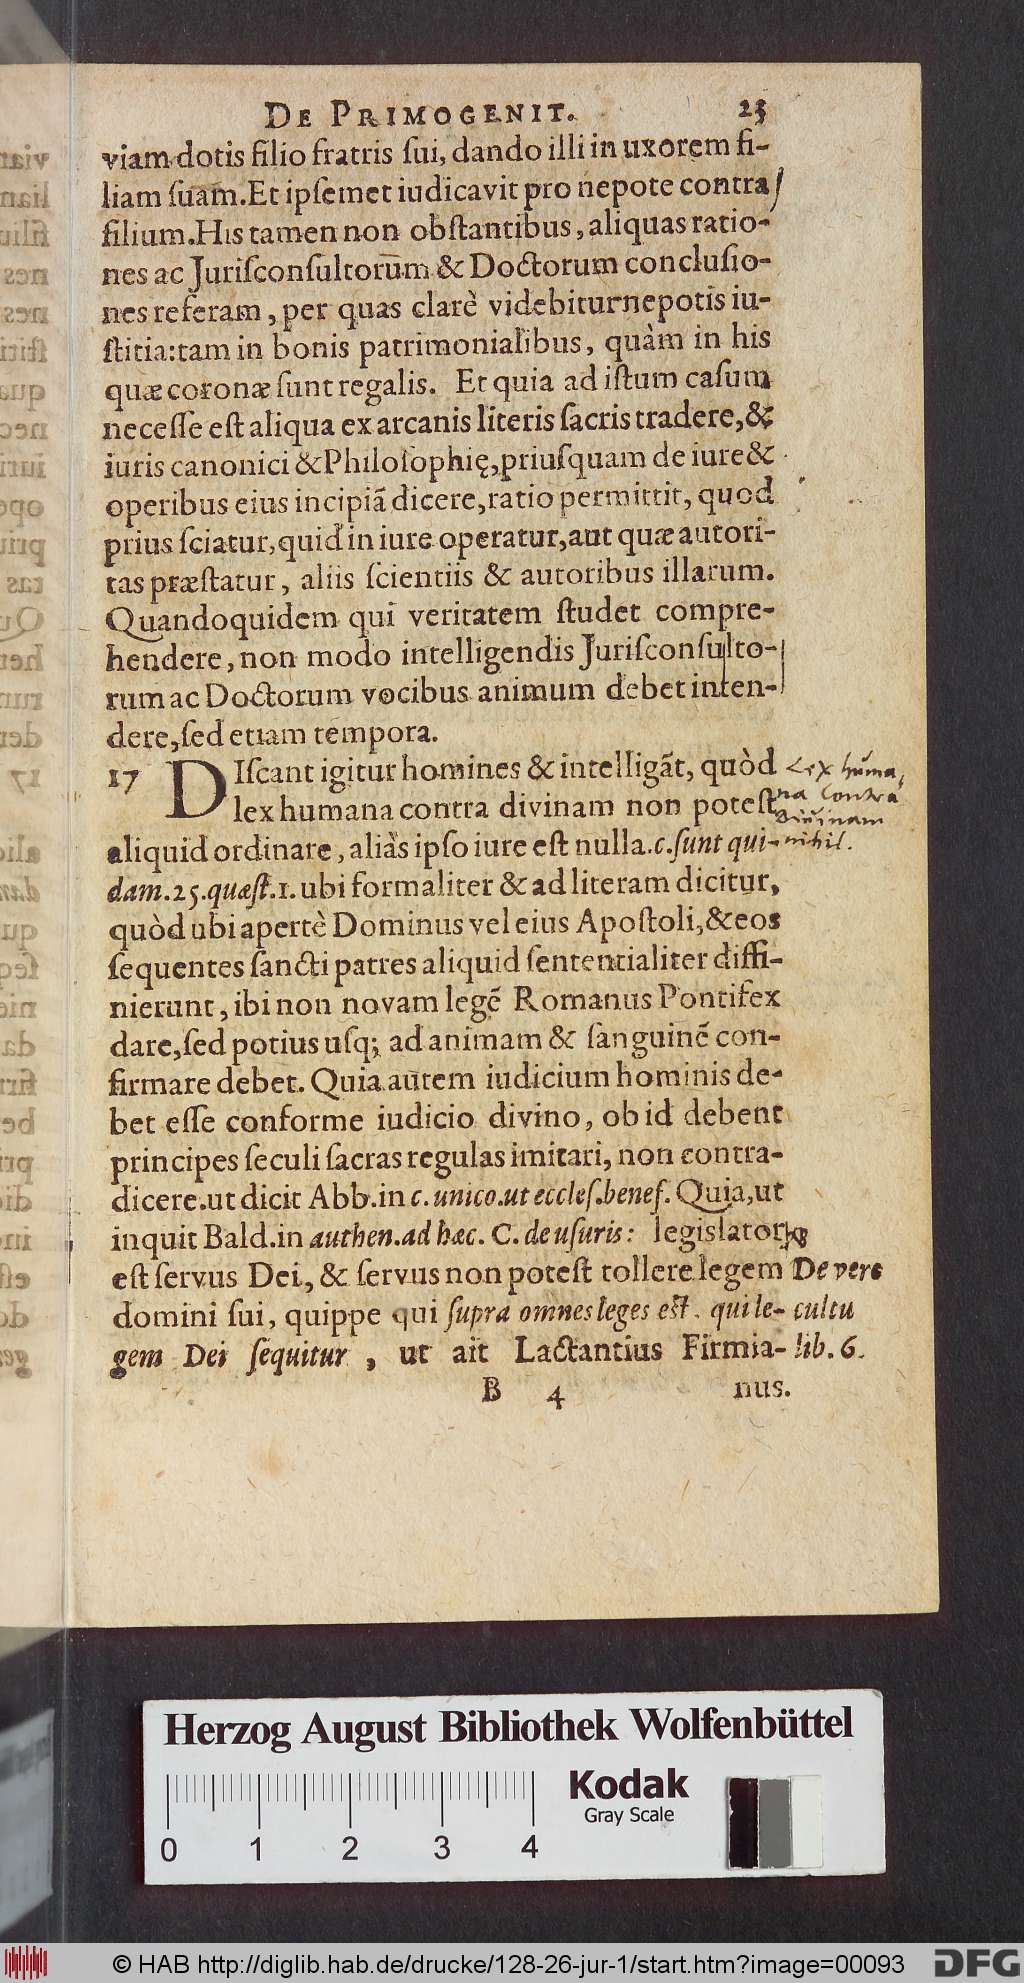 DE PRIMOGENIT. 23
viam dotis filio fratris ſui, dando illi in uxorem fi-
liam ſuam. Et ipſemet iudicavit pro nepote contra
filium. His tamen non obſtantibus, aliquas ratio-
nes ac Juriſconſultorum̄ & Doctorum concluſio-
nes referam, per quas clarè videbitur nepotis iu-
ſtitia: tam in bonis patrimonialibus, quàm in his
quæ coronæ ſunt regalis. Et quia ad iſtum caſum
neceſſe eſt aliqua ex arcanis literis ſacris tradere, &
iuris canonici & Philoſophię, priuſquam de iure &
operibus eius incipiã dicere, ratio permittit, quod
prius ſciatur, quid in iure operatur, aut quæ autori-
tas præſtatur, aliis ſcientiis & autoribus illarum.
Quandoquidem qui veritatem ſtudet compre-
hendere, non modo intelligendis Juriſconſulto-
rum ac Doctorum vocibus animum debet inten-
dere, ſed etiam tempora.
17 DIſcant igitur homines & intelligãt, quòd Lex huma,
lex humana contra divinam non poteſt na contra
divinam
aliquid ordinare, aliàs ipſo iure eſt nulla. c. ſunt qui- nihil.
dam. 25. quæſt. 1. ubi formaliter & ad literam dicitur,
quòd ubi apertè Dominus vel eius Apoſtoli, & eos
ſequentes ſancti patres aliquid ſententialiter diffi-
nierunt, ibi non novam legẽ Romanus Pontifex
dare, ſed potius uſq; ad animam & ſanguinẽ con-
firmare debet. Quia autem iudicium hominis de-
bet eſſe conforme iudicio divino, ob id debent
principes ſeculi ſacras regulas imitari, non contra-
dicere. ut dicit Abb. in c. unico. ut eccleſ. benef. Quia, ut
inquit Bald. in authen. ad hæc. C. de uſuris: legislator
eſt ſervus Dei, & ſervus non poteſt tollere legem De vero
domini ſui, quippe qui ſupra omnes leges eſt. qui le- cultu
gem Dei ſequitur, ut ait Lactantius Firmia- lib. 6.
B 4 nus.
Herzog August Bibliothek Wolfenbüttel
Kodak
Gray Scale
0 1 2 3 4
© HAB http://diglib.hab.de/drucke/128-26-jur-1/start.htm?image=00093 DFG